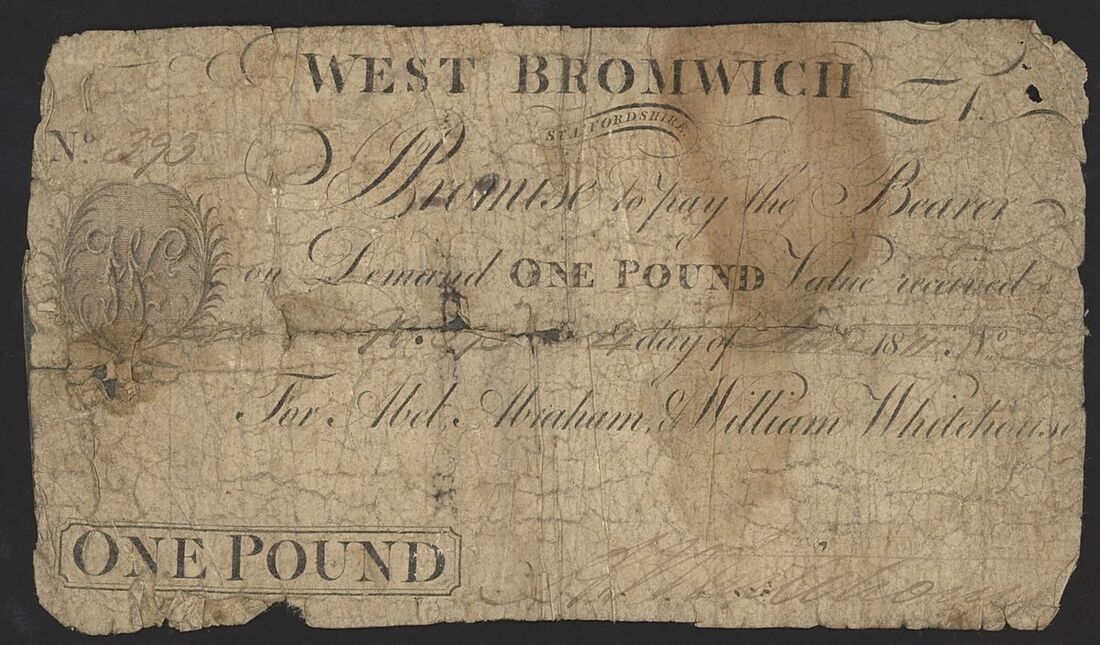 WEST BROMWICH
STAFFORDSHIRE
1.
No. 393
I Promise to pay the Bearer
on Demand ONE POUND Value received
day of 18 No.
For Abel, Abraham, & William Whitehouse
ONE POUND